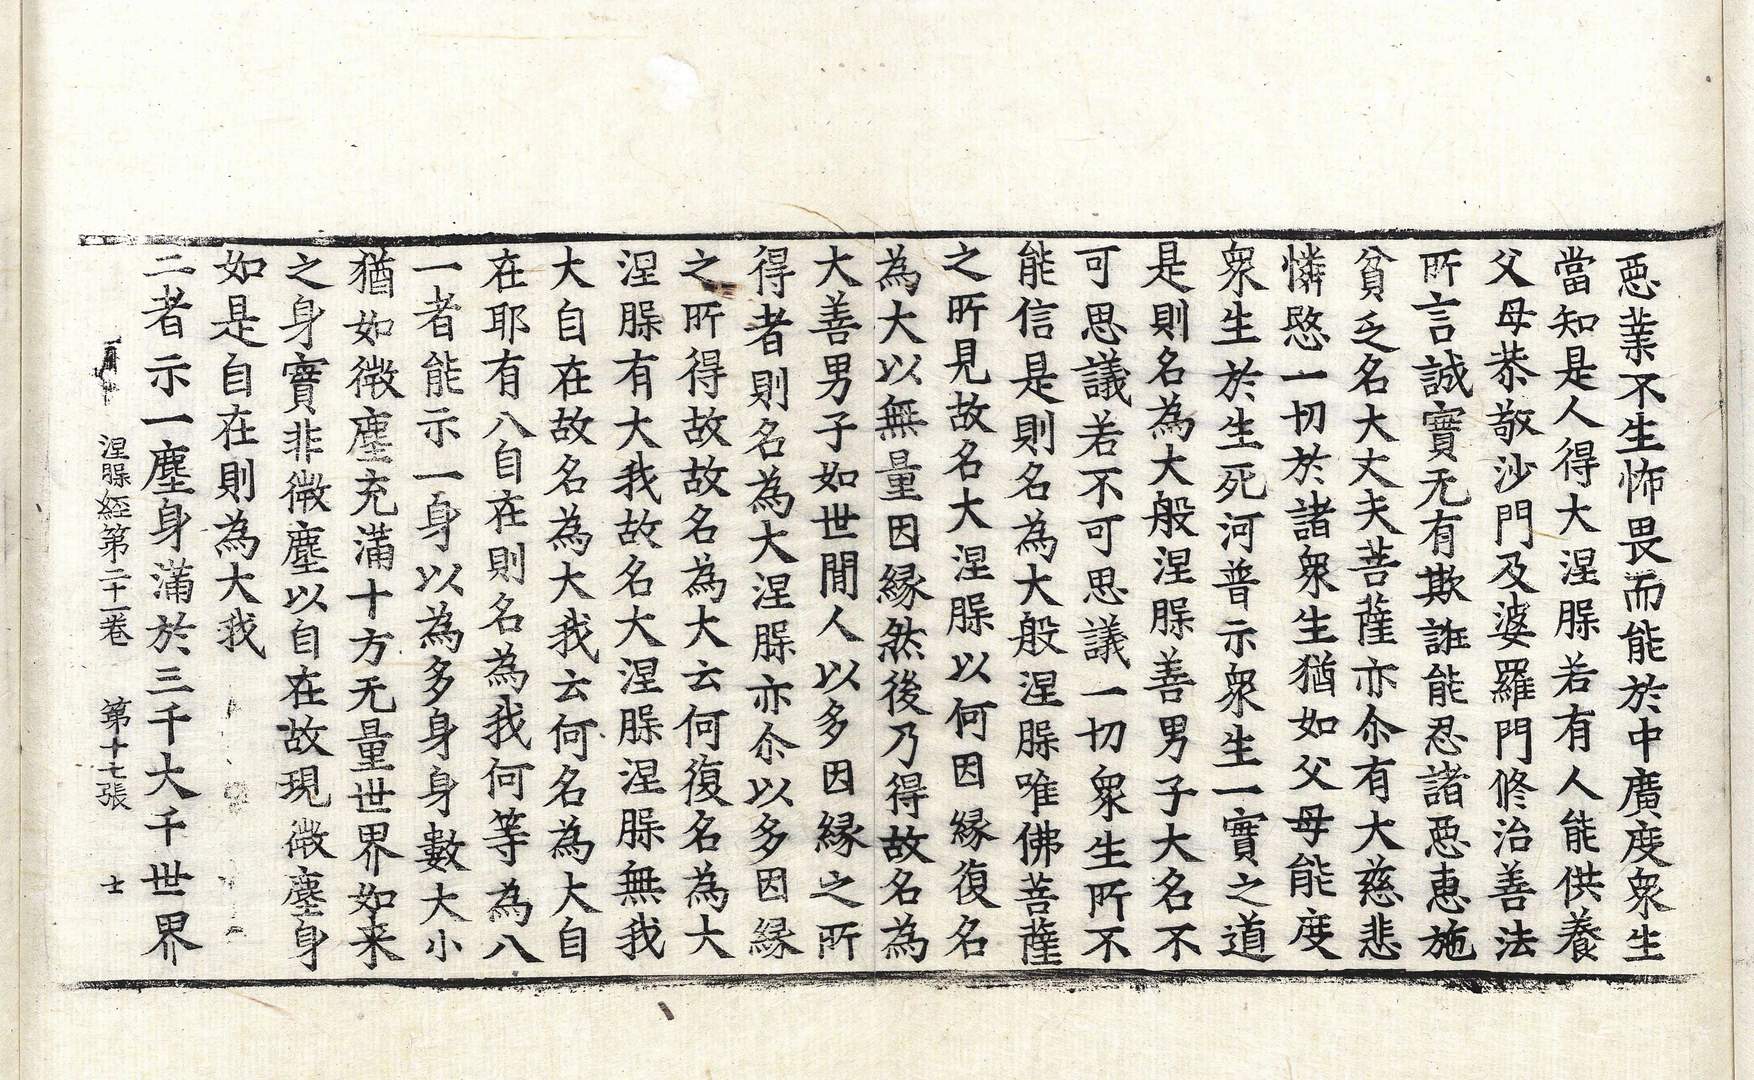 惡業不生怖畏而能於中廣度衆生
當知是人得大涅槃若有人能供養
父母恭敬沙門及婆羅門修治善法
所言誠實无有欺誑能忍諸惡惠施
貧乏名大丈夫菩薩亦尒有大慈悲
憐愍一切於諸衆生猶如父母能度
衆生於生死河普示衆生一實之道
是則名為大般涅槃善男子大名不
可思議若不可思議一切衆生所不
能信是則名為大般涅槃唯佛菩薩
之所見故名大涅槃以何因縁復名
為大以無量因縁然後乃得故名為
大善男子如世間人以多因縁之所
得者則名為大涅槃亦尒以多因縁
之所得故故名為大云何復名為大
涅槃有大我故名大涅槃涅槃無我
大自在故名為大我云何名為大自
在耶有八自在則名為我何等為八
一者能示一身以為多身身數大小
猶如微塵充滿十方无量世界如来
之身實非微塵以自在故現微塵身
如是自在則為大我
二者示一塵身滿於三千大千世界
涅槃經第二十一卷 第十七張 士